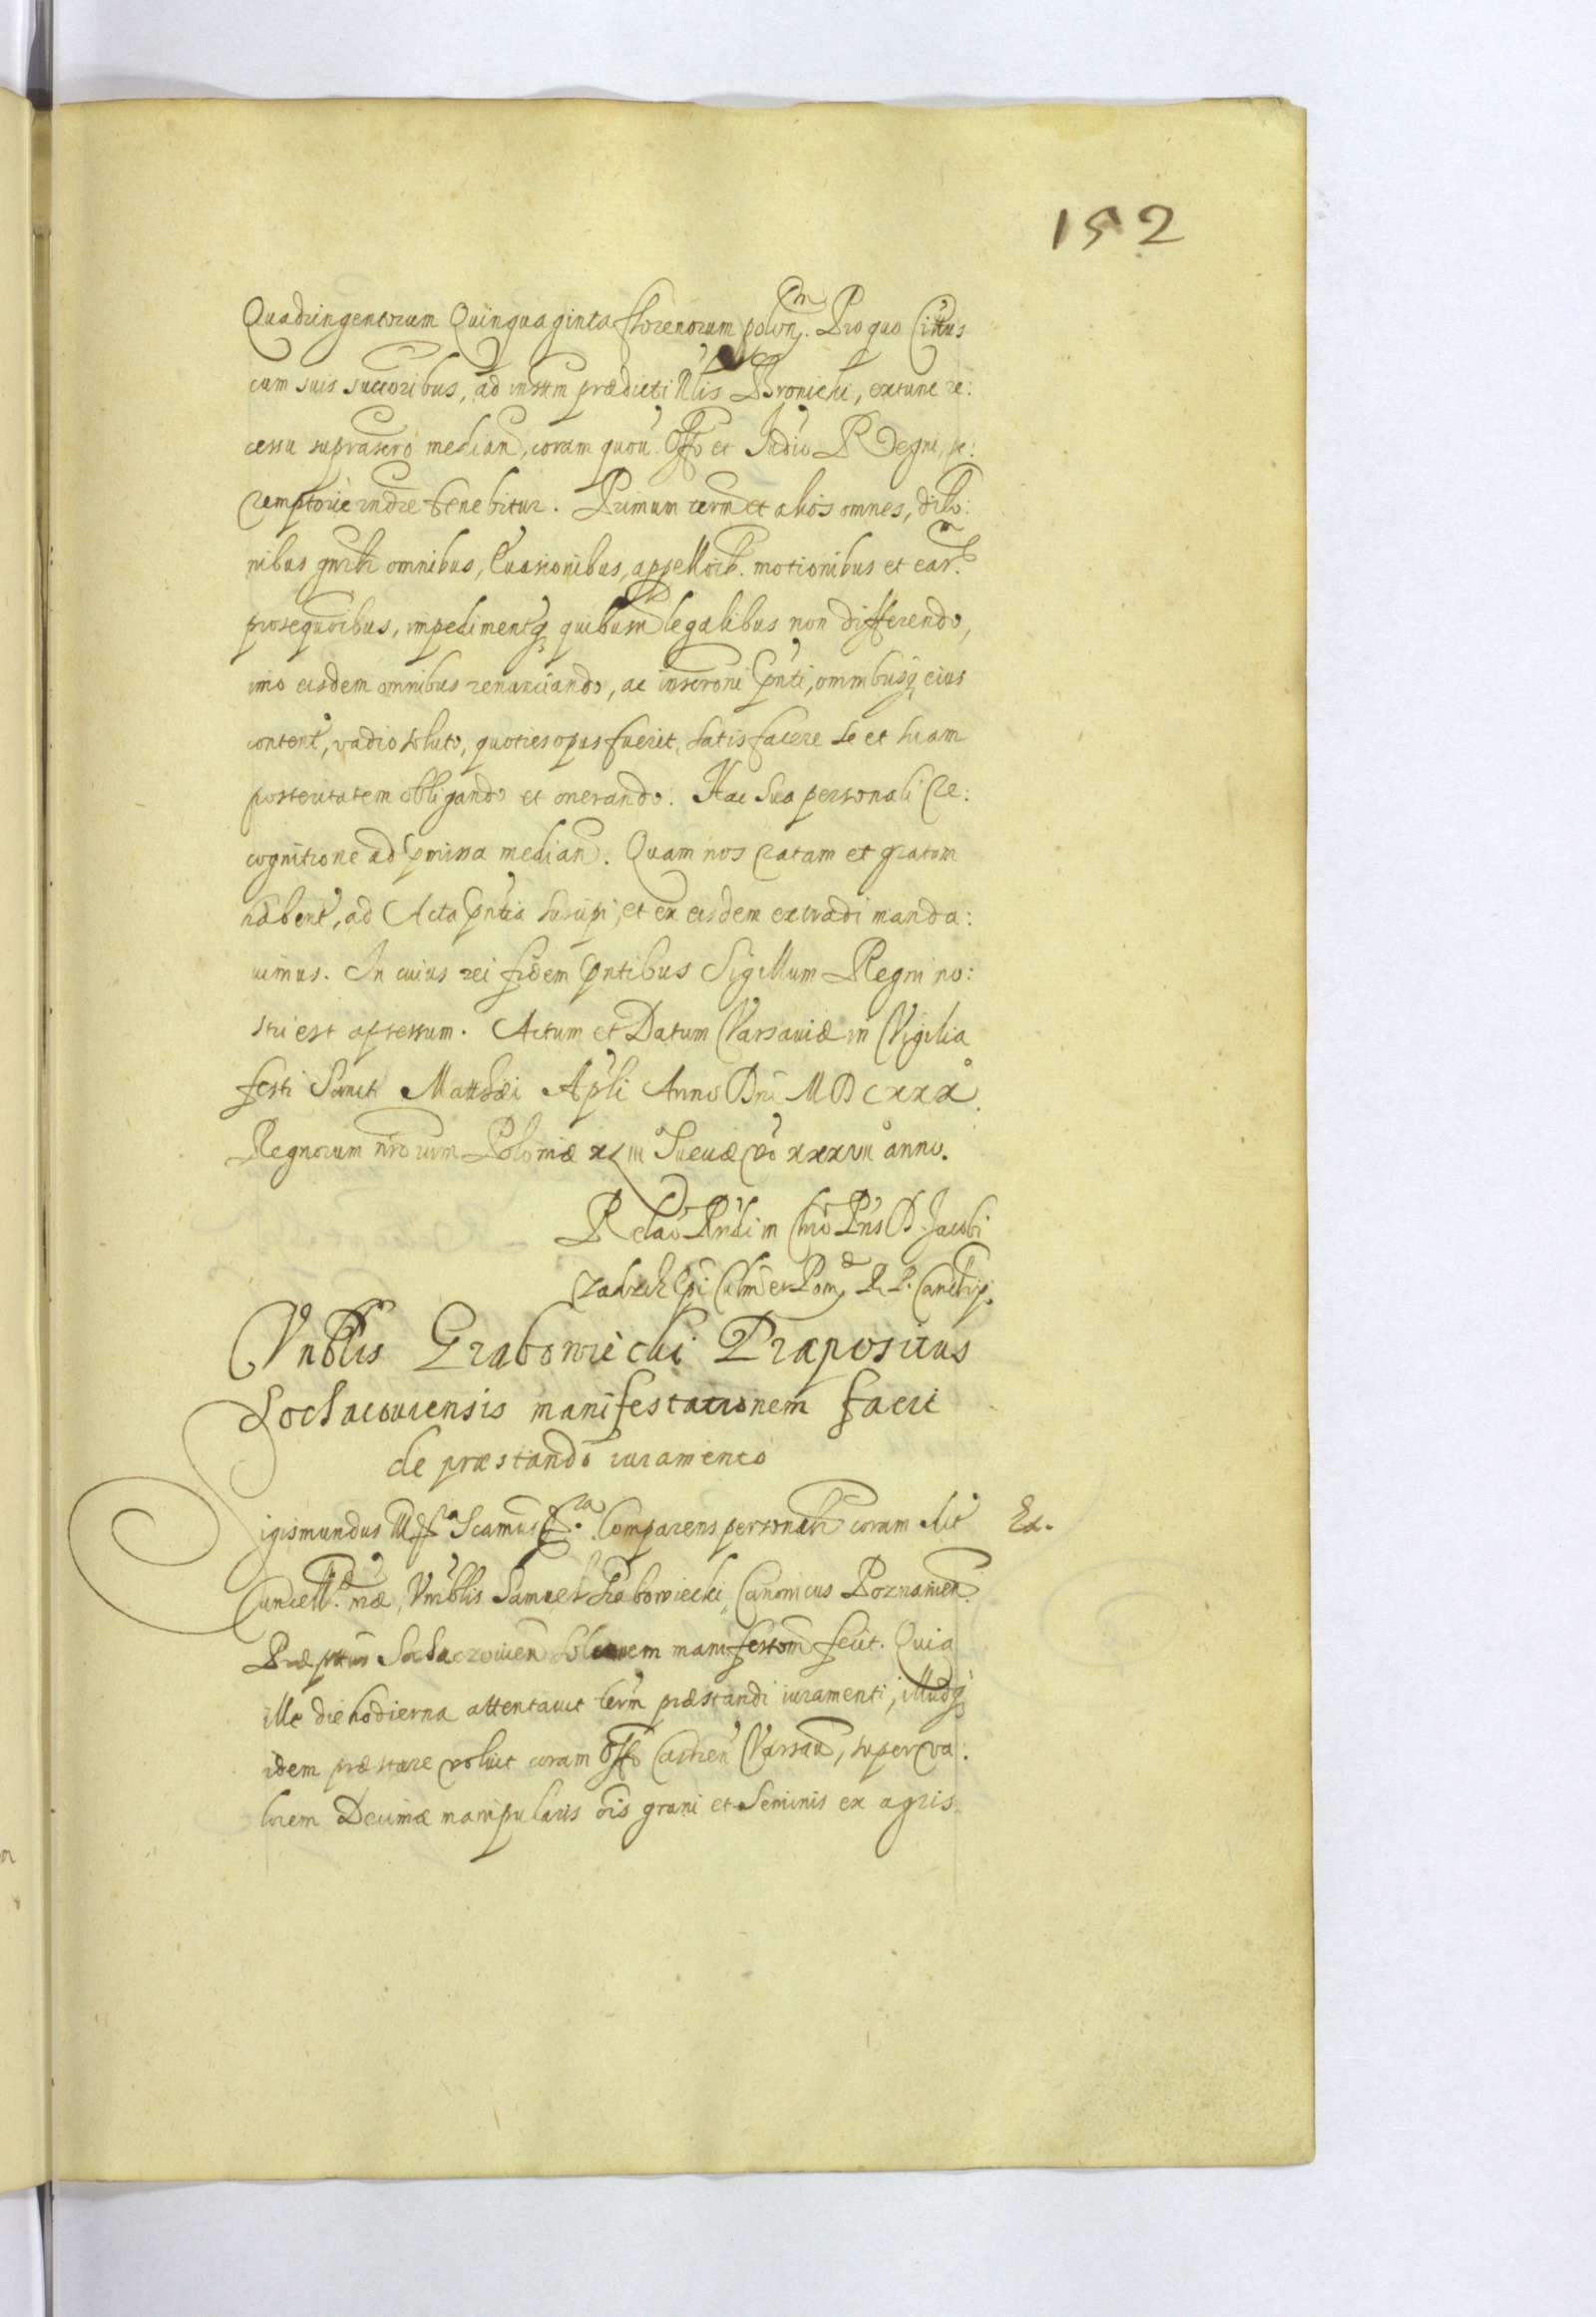 152
Quadringentorum Quinquaginta florenorum polon. Pro quo Cittus
cum suis succoribus, ad instm prædicti Nlis Bronicki, extunc re:
cessu suprascro median, coram quou Offo et Iudio Regni, pe:
remptorie indre tenebitur. Primum term et alios omnes, dilo:
nibus gnrlr omnibus, Euasionibus, appelloib. motionibus et ear.
prosequoibus, impedimentq quibusu legalibus non differendo,
imo eisdem omnibus renunciando, ac inscroni pnti, omnibusq eius
content, vadio soluto, quoties opus fuerit, satisfacere se et suam
posteritatem obligando et onerando. Hac sua personali Re:
cognitione ad pmissa median. Quam nos ratam et gratam
habent, ad Acta pntia suscipi, et ex eisdem extradi manda:
uimus. In cuius rei fidem pntibus Sigillum Regni no:
stri est apressum. Actum et Datum Varsauiæ in Vigilia
festi Sancti Matthæi Apli Anno Dni MDCXXX.
Regnorum nrorum Poloniæ XLIII Sueciæ vo XXXVII anno.
Relao Rndi in Chro Pris D. Jacobi
Zadzik Epi Culmen et Pom. R. P. Cancrij.
Vnblis Grabowiecki Præpositus
Sochacouiensis manifestationem facit
de præstando iuramento
Sigismundus III &a Scamus &a. Comparens personalr coram Act Ex.
Cancell. nræ, Vnrblis Samuel Grabowiecki, Canonicus Poznanien.
Præptus Sochaczouien solennem manifestom fecit. Quia
ille die hodierna attentauit term præstandi iuramenti, illudq
idem præstare voluit coram Offo Castren Varsau, super va:
lorem Decimæ manipularis ois grani et Seminis ex agris